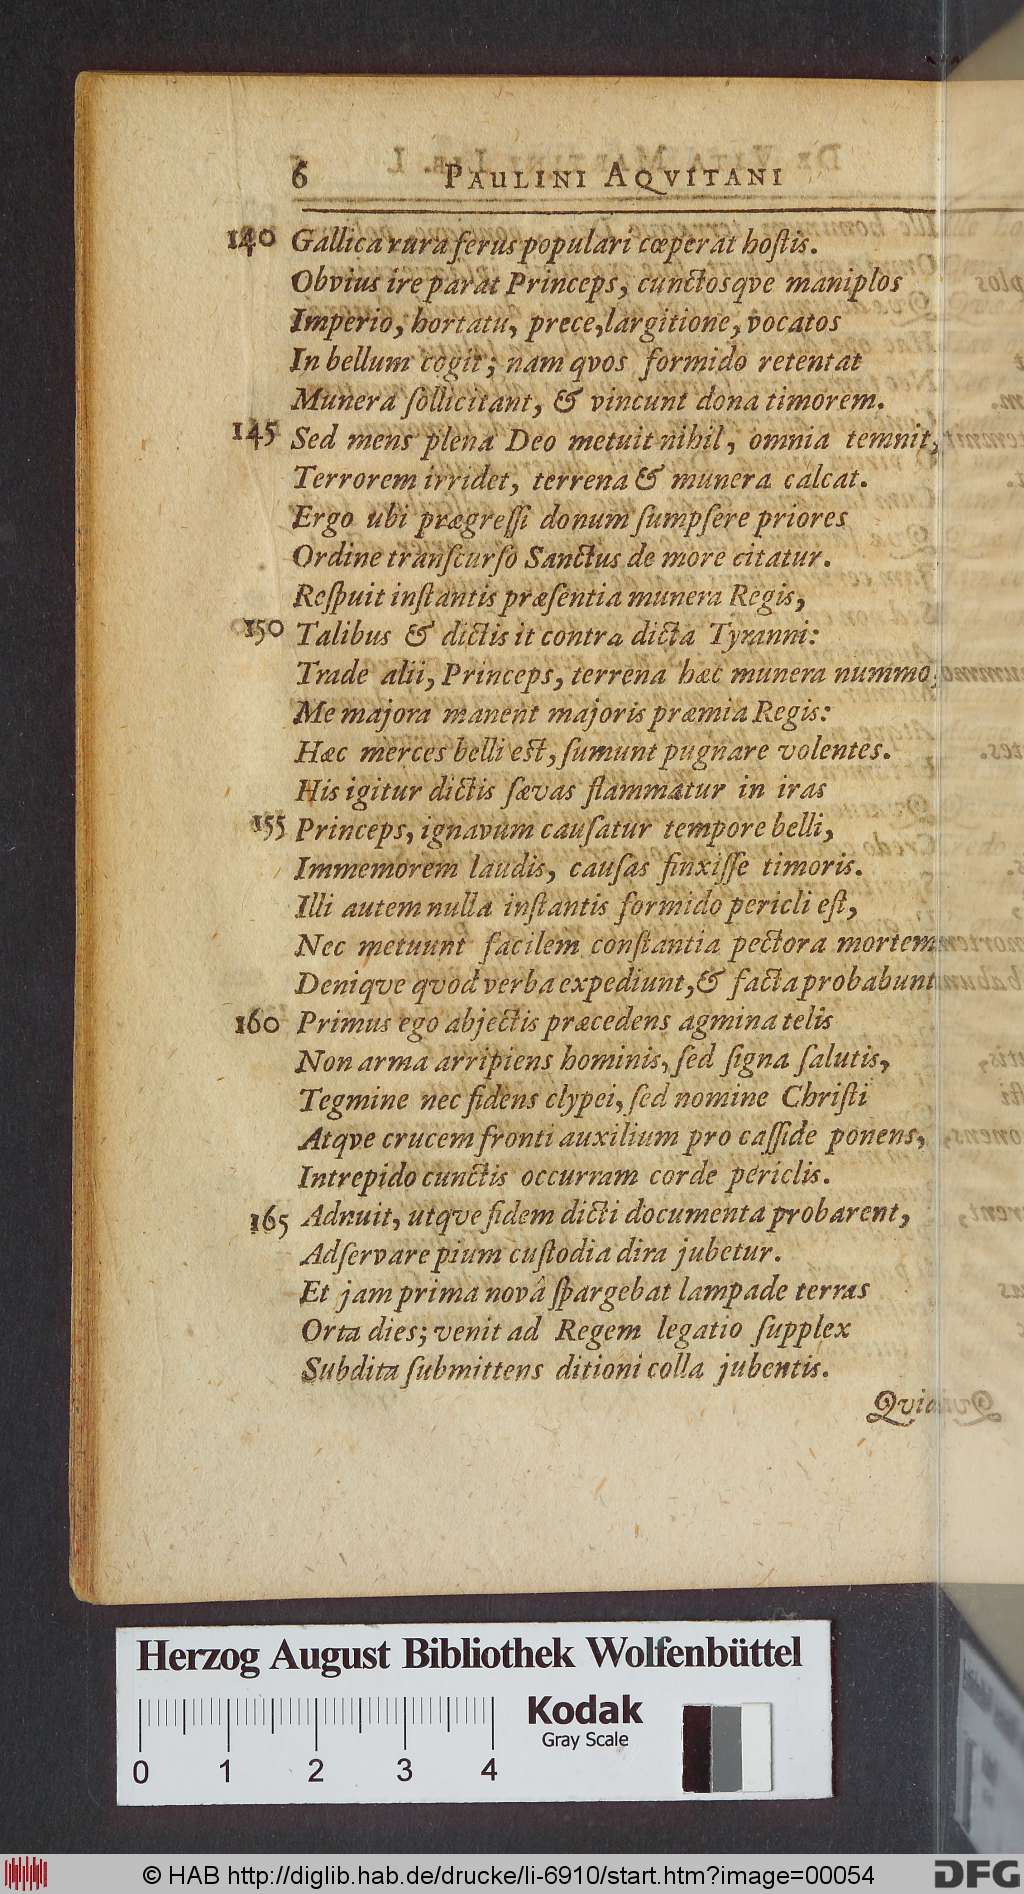 6 PAULINI AQVITANI
140 Gallica rura ferus populari cœperat hoſtis.
Obvius ire parat Princeps, cunctosqve maniplos
Imperio, hortatu, prece, largitione, vocatos
In bellum cogit; nam qvos formido retentat
Munera ſollicitant, & vincunt dona timorem.
145 Sed mens plena Deo metuit nihil, omnia temnit,
Terrorem irridet, terrena & munera calcat.
Ergo ubi prægreſſi donum ſumpſere priores
Ordine tranſcurſo Sanctus de more citatur.
Reſpuit inſtantis præſentia munera Regis,
150 Talibus & dictis it contra dicta Tyranni:
Trade alii, Princeps, terrena hæc munera nummo,
Me majora manent majoris præmia Regis:
Hæc merces belli est, ſumunt pugnare volentes.
His igitur dictis ſævas flammatur in iras
155 Princeps, ignavum cauſatur tempore belli,
Immemorem laudis, cauſas finxiſſe timoris.
Illi autem nulla inſtantis formido pericli eſt,
Nec metuunt facilem conſtantia pectora mortem
Deniqve qvod verba expediunt, & facta probabunt
160 Primus ego abjectis præcedens agmina telis
Non arma arripiens hominis, ſed ſigna ſalutis,
Tegmine nec fidens clypei, ſed nomine Chriſti
Atqve crucem fronti auxilium pro caſſide ponens,
Intrepido cunctis occurram corde periclis.
165 Adnuit, utqve fidem dicti documenta probarent,
Adſervare pium cuſtodia dira jubetur.
Et jam prima novâ ſpargebat lampade terras
Orta dies; venit ad Regem legatio ſupplex
Subdita ſubmittens ditioni colla jubentis.
Herzog August Bibliothek Wolfenbüttel
0 1 2 3 4
Kodak
Gray Scale
© HAB http://diglib.hab.de/drucke/li-6910/start.htm?image=00054
DFG